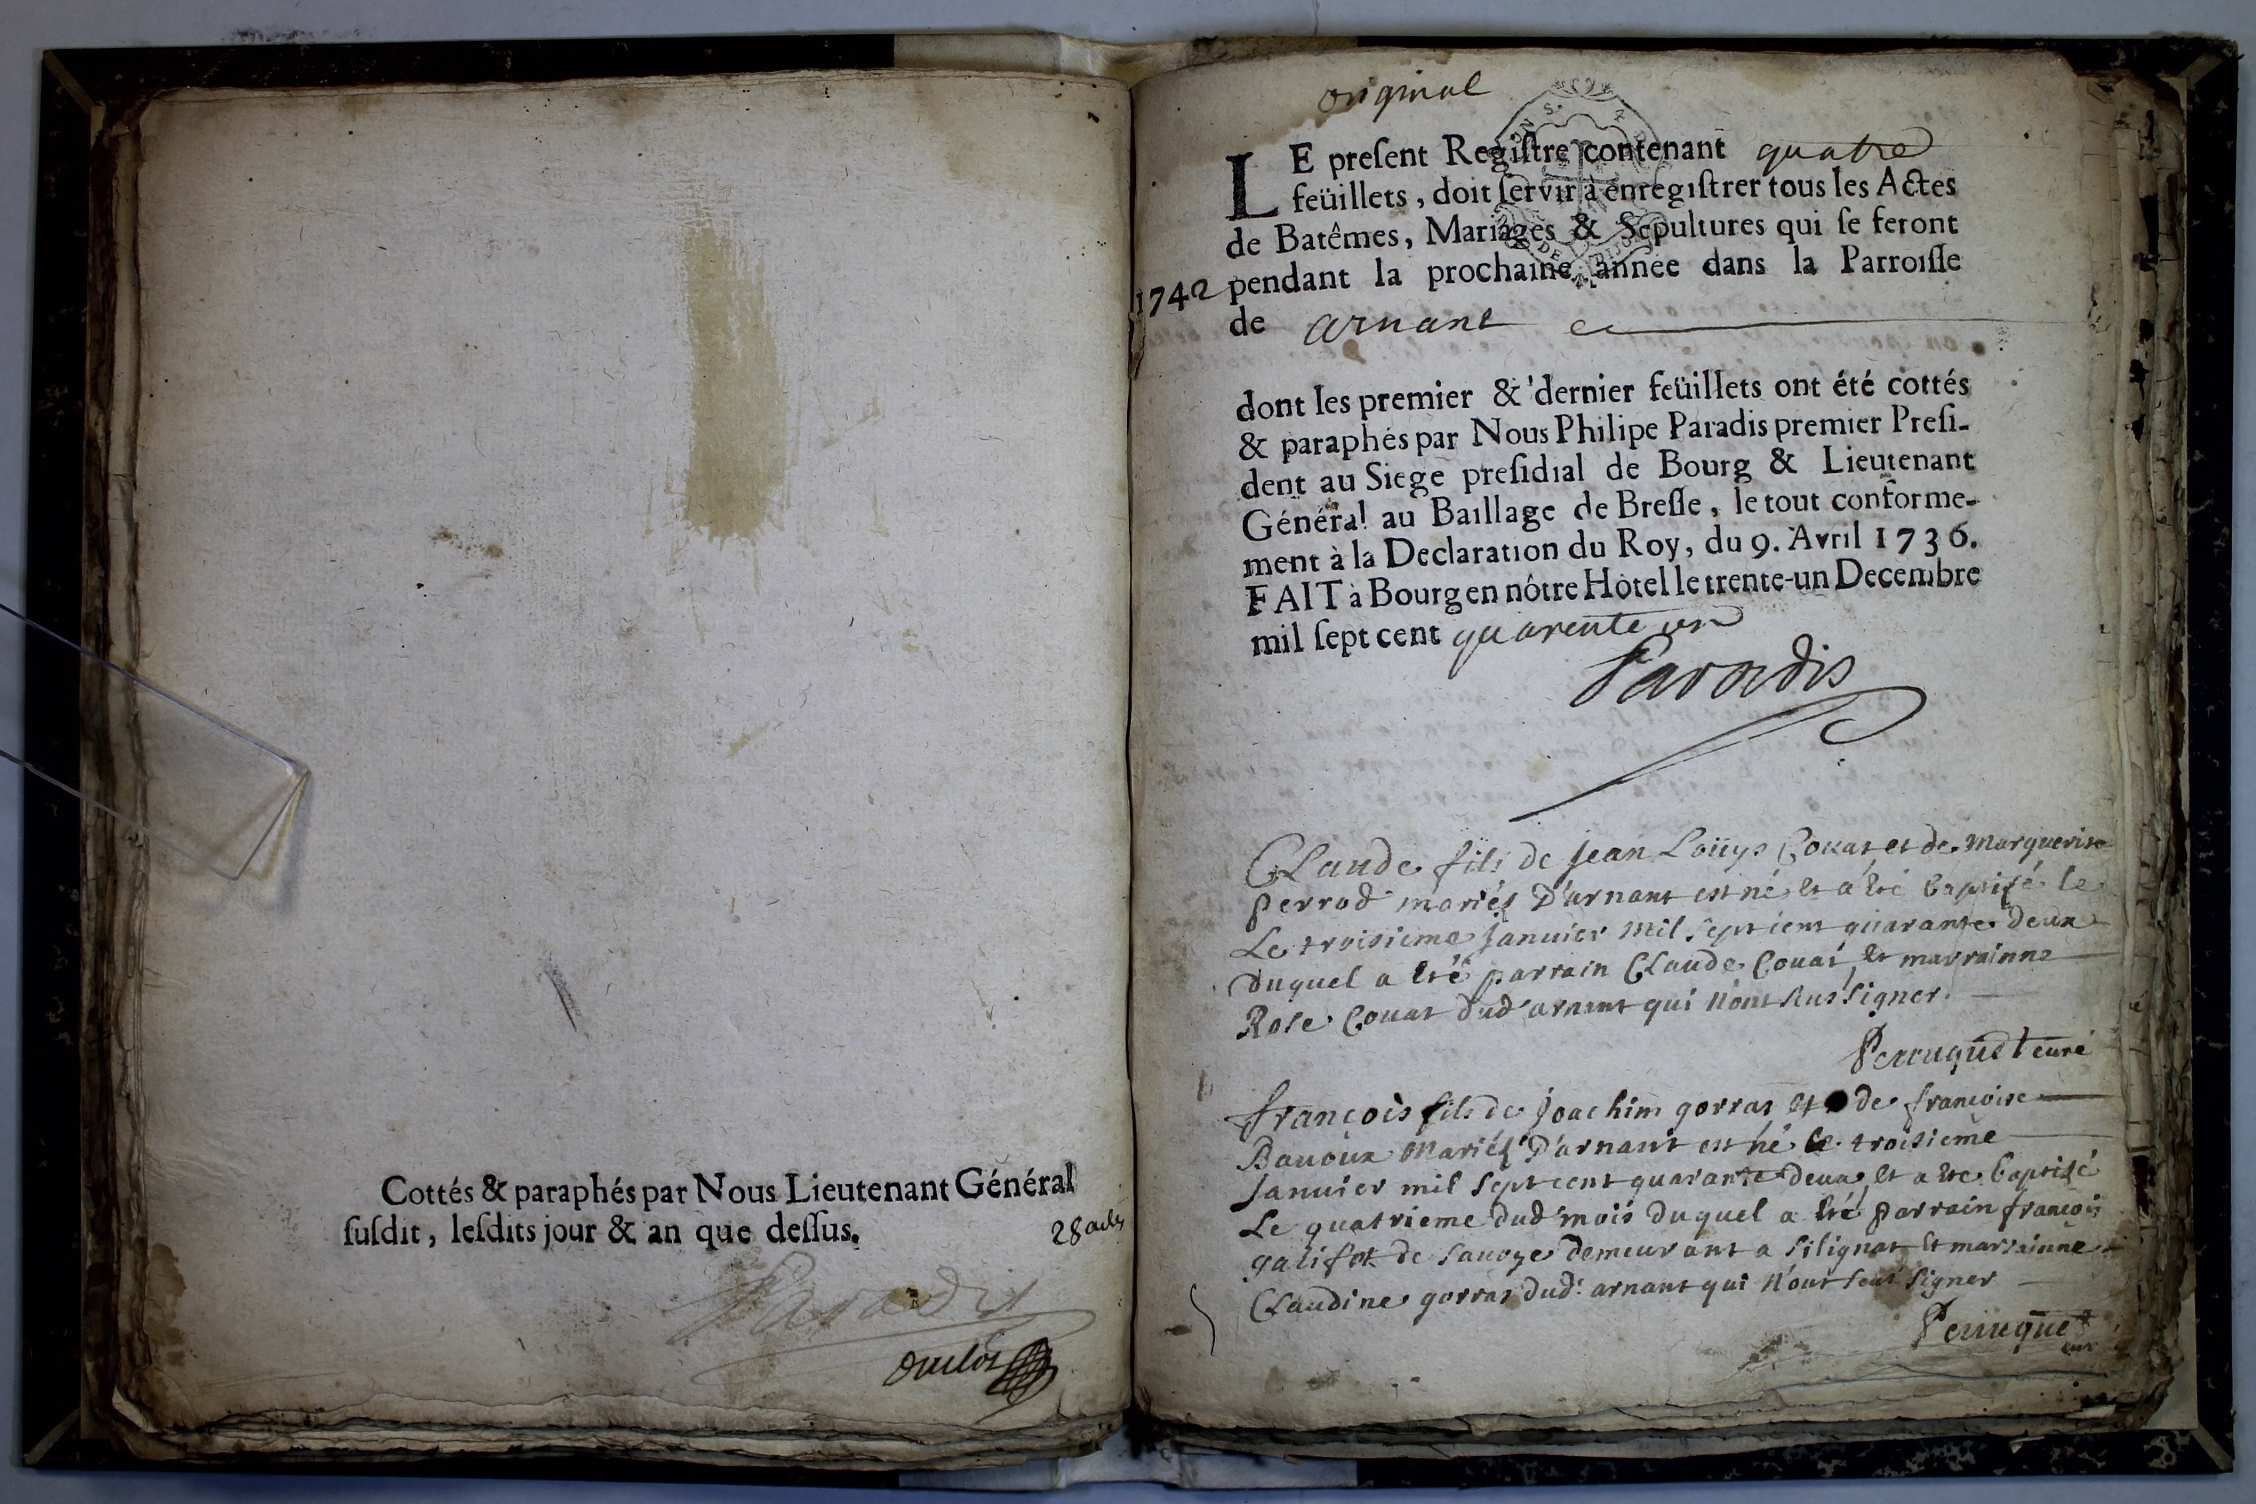 Cottés & paraphés par Nous Lieutenant Général
ſuſdit, leſdits jour & an que deſſus.
28 actes
Paradis
original
LE preſent Regiſtre contenant quatre
feüillets, doit ſervir à enregiſtrer tous les Actes
de Batêmes, Mariages & Sepultures qui ſe feront
1742 pendant la prochaine année dans la Parroiſſe
de arnant
dont les premier & dernier feüillets ont été cottés
& paraphés par Nous Philipe Paradis premier Preſi-
dent au Siege preſidial de Bourg & Lieutenant
Général au Baillage de Breſſe, le tout conforme-
ment à la Declaration du Roy, du 9. Avril 1736.
FAIT à Bourg en nôtre Hôtel le trente-un Decembre
mil ſept cent quarente un
Paradis
Claude fils de Jean Loüys Couat et de Marguerite
perrod mariés D'arnant est né et a été baptisé le
Le troisieme Janvier mil sept cent quarante deux
duquel a été parrain Claude Couat et marrainne
Rose Couat dud arnant qui n'ont sus signer.
Perruquet curé
françois fils de Joachim gorras et de françoise
Bavoux Mariés D'arnant est né le troisieme
Janvier mil sept cent quarante deux et a été baptisé
Le quatrieme dud mois duquel a été parrain françois
de savoye demeurant a silignat et marrainne
Claudine gorras dud. arnant qui n'ont seus signer
Perruquet
curé